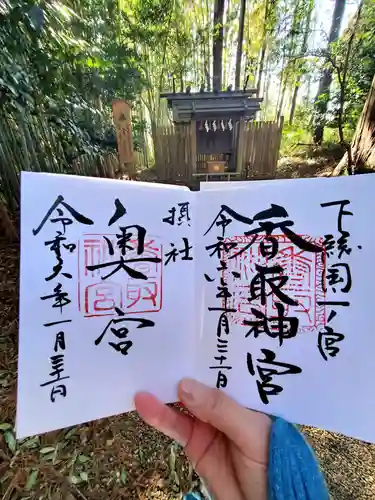 下総国一ノ宮
香取神宮
令和六年一月三十日
摂社
奥宮
令和六年一月三十日